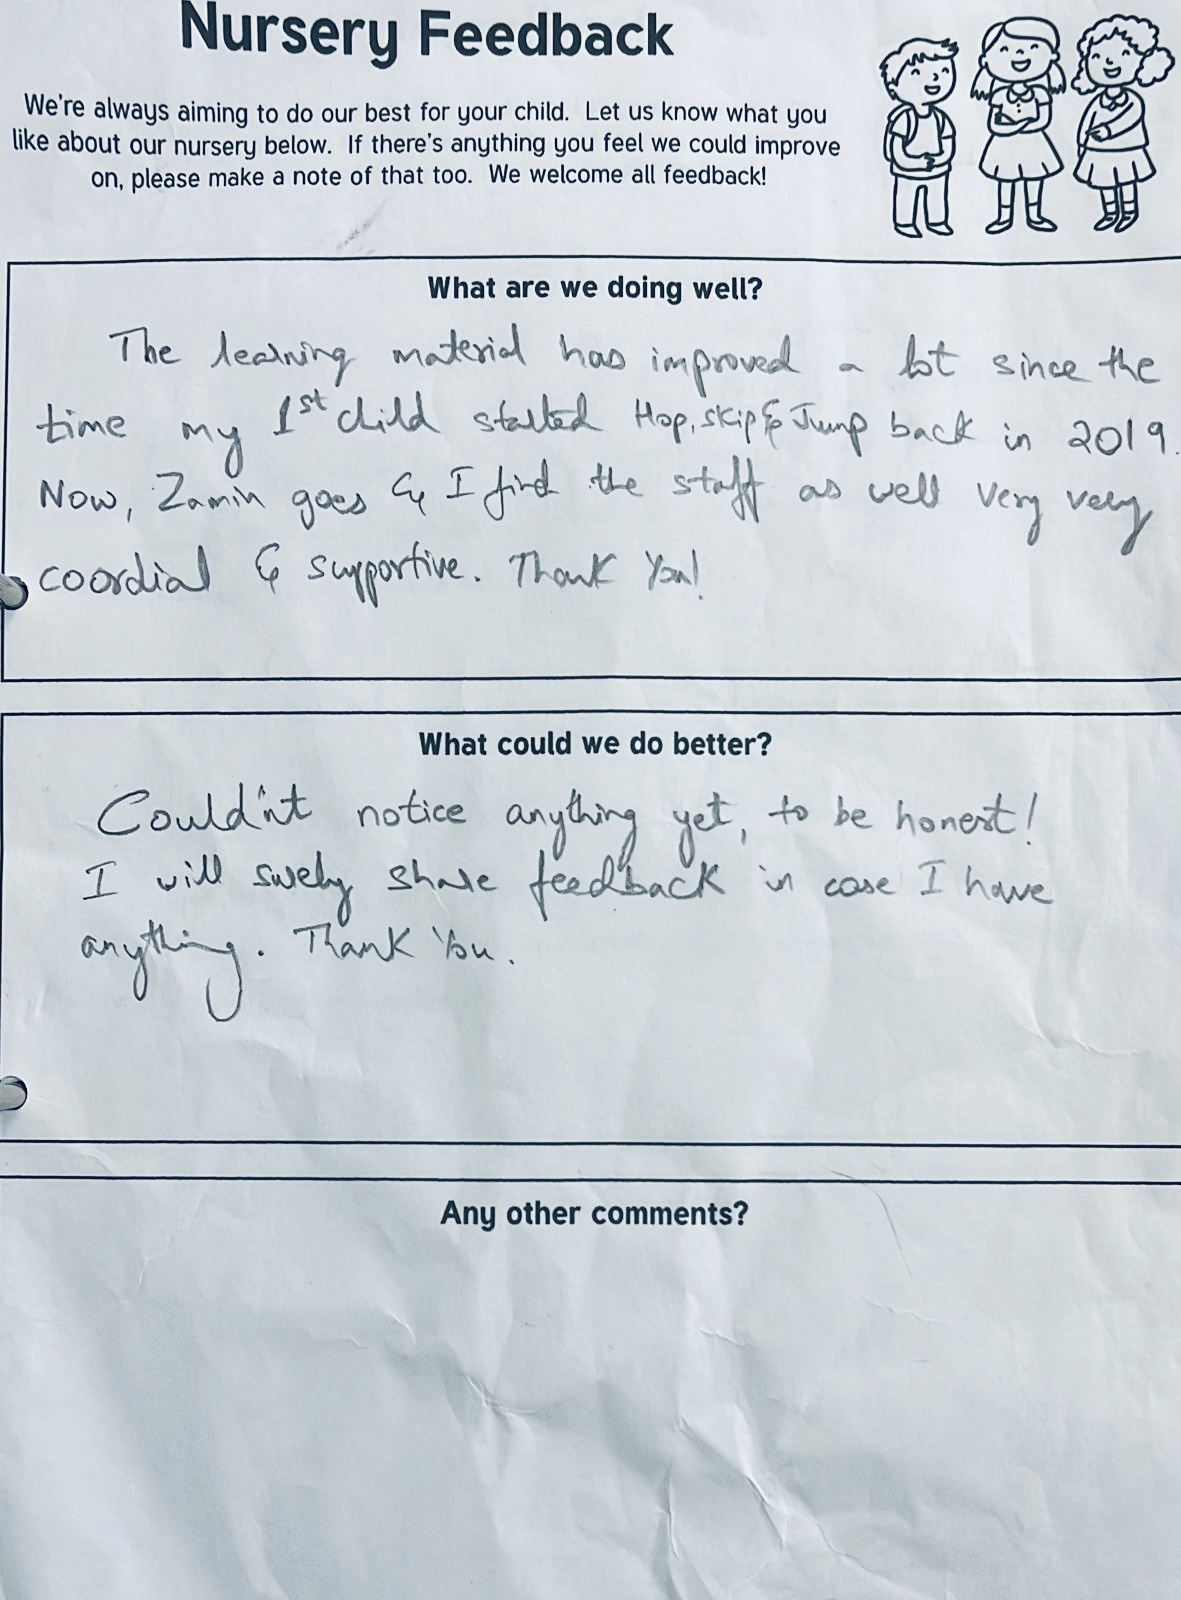 Nursery Feedback
We're always aiming to do our best for your child. Let us know what you
like about our nursery below. If there's anything you feel we could improve
on, please make a note of that too. We welcome all feedback!
What are we doing well?
The learning material has improved a lot since the
time my 1st child started Hop, skip & Jump back in 2019.
Now, Zamin goes & I find the staff as well very very
coordial & supportive. Thank You!
What could we do better?
Could'nt notice anything yet, to be honest!
I will surely share feedback in case I have
anything. Thank You.
Any other comments?